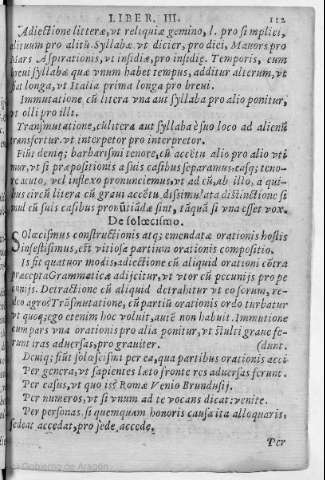 LIBER. III. 112
Adiectione litteræ, vt reliquiæ gemino, l. pro si mplici,
alituum pro alitũ. Syllabæ vt dicier, pro dici, Mauors pro
Mars Aspirationis, vt insidiæ, pro insidiẹ. Temporis, cum
breui syllabæ quæ vnum habet tempus, additur alterum, vt
fiat longa, vt Italia prima longa pro breui.
Immutatione cũ litera vna aut syllaba pro alio ponitur,
vt olli pro illi.
Transmutatione, cũ litera aut syllaba è suo loco ad alienũ
transfertur. vt interpetor pro interpretor.
Fiũt deniq; barbarismi tenore, cũ accẽtu alio pro alio vti
mur, vt si præpositionis a suis casibus separamus easq; teno-
re acuto, vel inflexo pronunciemus, vt ad cũ, ab illo, a qui-
bus circũ litera cũ graui accẽtu dissimulata distinctione si
mul cũ suis casibus pronũtiãdæ sint, tãquã si vna esset vox.
De solœcismo.
Solœcismus constructionis atq; emendatæ orationis hostis
infestissimus, est vitiosa partium orationis compositio.
Is fit quatuor modis, adiectione cũ aliquid orationi cõtra
præcepta Grammaticæ adijcitur, vt vtor cũ pecunijs pro pe
cunijs. Detractione cũ aliquid detrahitur vt eo forum, re-
deo agros Trãsmutatione, cũ partiũ orationis ordo turbatur
vt quoq; ego etenim hoc voluit, autẽ non habuit. Immutione
cum pars vna orationis pro alia ponitur, vt grave fe-
runt iras aduersas, pro grauiter. (dunt.
Deniq; fiũt solœcismi per ea, qua partibus orationis acci
Per genera, vt sapientes læto fronte res aduersas ferunt.
Per casus, vt quo iss Romæ Venio Brundusij.
Per numeros, vt si vnum ad te vocans dicat: venite.
Per personas. si quemquam honoris causa ita alloquaris,
sedeat accedat, pro sede accede.
Per
Gobierno de Aragón